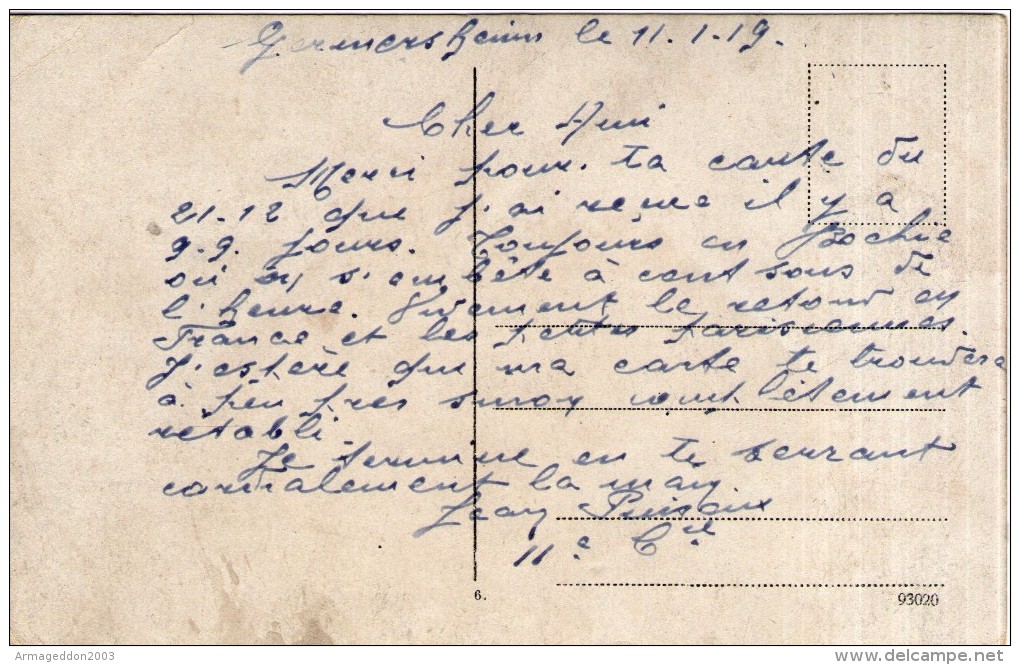 Germersheim le 11.1.19.
Cher Ami
Merci pour ta carte du
21.12 que j'ai reçue il y a
jours. Toujours en Bochie
où on s'embête à cent sous de
l'heure. Vivement le retour en
France et les petites parisiennes.
J'espère que ma carte te trouvera
à peu près sinon complètement
rétabli.
Je termine en te serrant
cordialement la main
Jean
11e Cie
6.
93020
Armageddon2003
www.delcampe.net